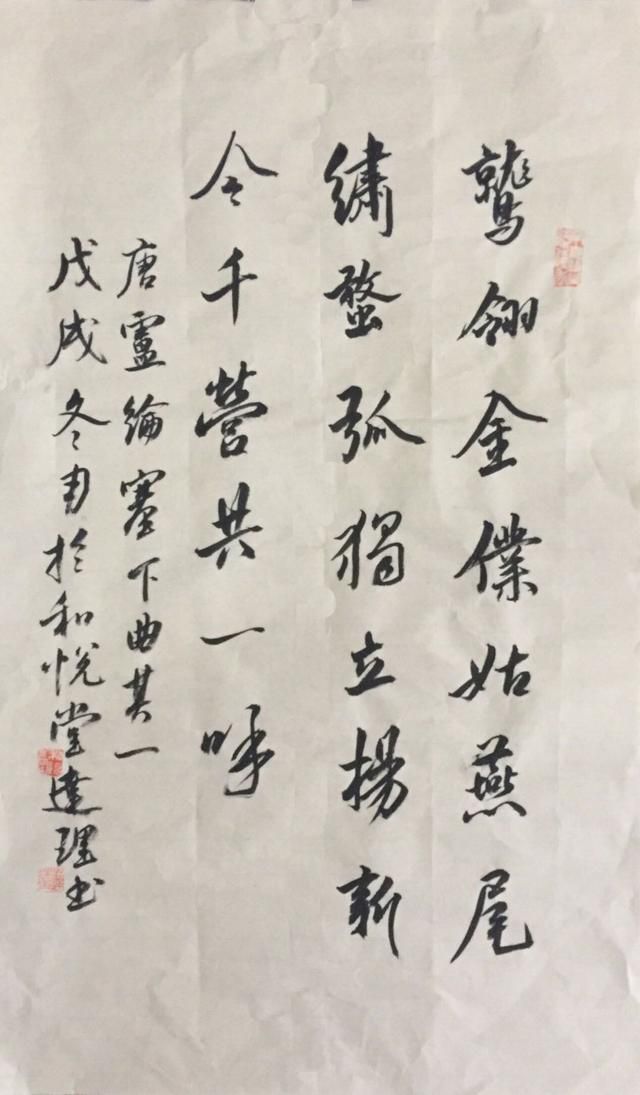 鷲翎金僕姑燕尾
繡蝥弧獨立揚新
令千營共一呼
唐盧綸塞下曲其一
戊戌冬月於和悅堂達理书